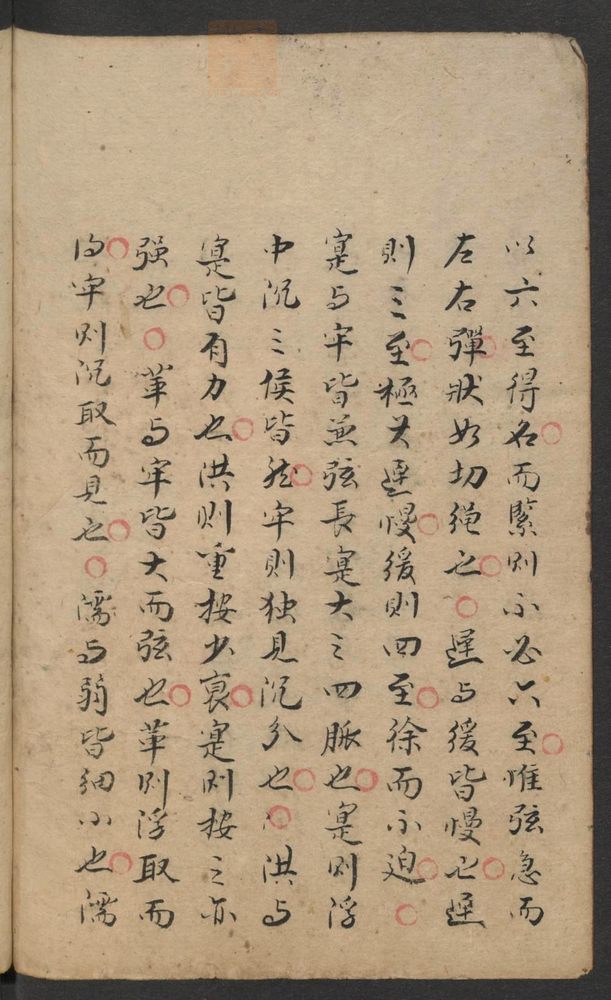 以六至得名而緊則不必六至惟弦急而
左右彈狀如切绳也遲与緩皆慢也遲
則三至極其遲慢緩則四至徐而不迫
寔与牢皆兼弦長寔大之四脈也寔則浮
中沉三候皆然牢則独見沉分也洪与
寔皆有力也洪則重按少衰寔則按之亦
强也革与牢皆大而弦也革則浮取而
得牢則沉取而見也濡与弱皆细小也濡